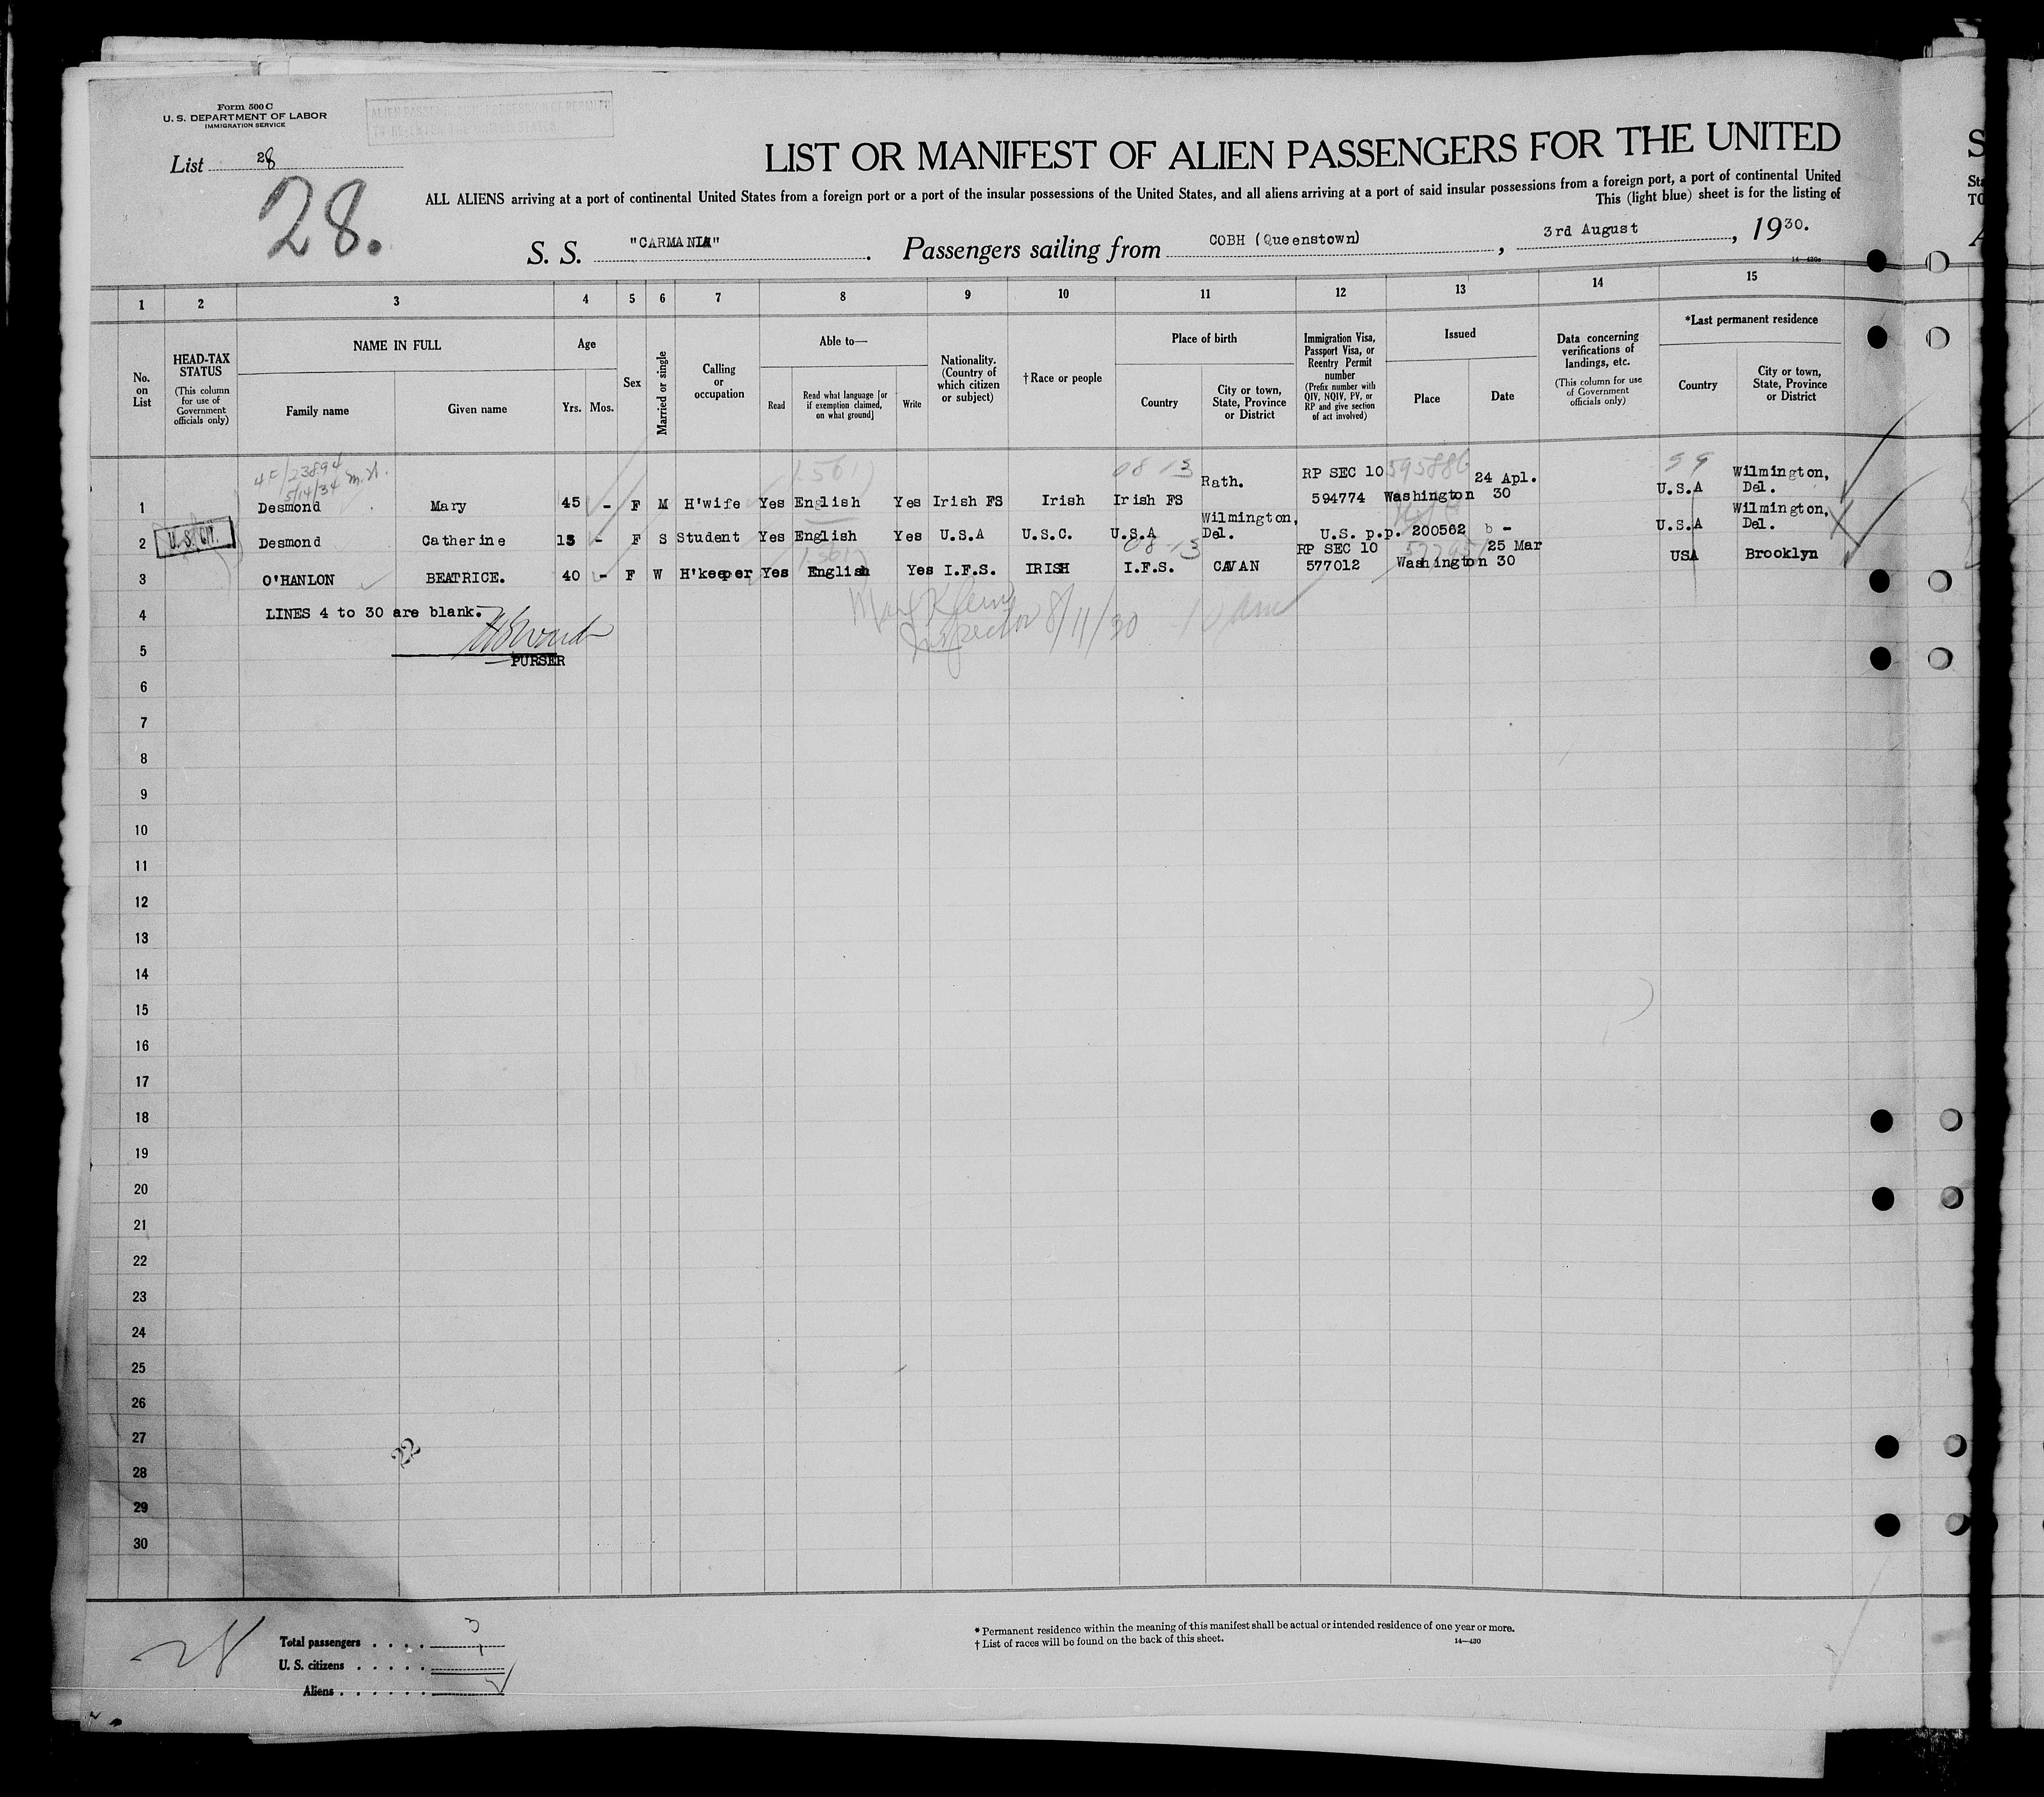 Form 500 C
U. S. DEPARTMENT OF LABOR
IMMIGRATION SERVICE
ALIEN PASSENGERS IN POSSESSION OF PERMITS
TO RE-ENTER THE UNITED STATES
List 28
28.
LIST OR MANIFEST OF ALIEN PASSENGERS FOR THE UNITED
ALL ALIENS arriving at a port of continental United States from a foreign port or a port of the insular possessions of the United States, and all aliens arriving at a port of said insular possessions from a foreign port, a port of continental United
This (light blue) sheet is for the listing of
S. S. "CARMANIA". Passengers sailing from COBH (Queenstown), 3rd August, 1930.
1 2 3 4 5 6 7 8 9 10 11 12 13 14 15
No. on List
HEAD-TAX STATUS (This column for use of Government officials only)
NAME IN FULL Family name Given name
Age Yrs. Mos.
Sex
Married or single
Calling or occupation
Able to— Read Read what language [or if exemption claimed, on what ground] Write
Nationality. (Country of which citizen or subject)
†Race or people
Place of birth Country City or town, State, Province or District
Immigration Visa, Passport Visa, or Reentry Permit number (Prefix number with QIV, NQIV, PV, or RP and give section of act involved)
Issued Place Date
Data concerning verifications of landings, etc. (This column for use of Government officials only)
*Last permanent residence Country City or town, State, Province or District
4F/23894 5/14/34 m.h.
1 Desmond Mary 45 - F M H'wife Yes English Yes Irish FS Irish Irish FS Rath. RP SEC 10 594774 595886 Washington 24 Apl. 30 U.S.A Wilmington, Del.
2 U.S. CIT. Desmond Catherine 15 - F S Student Yes English Yes U.S.A U.S.C. U.S.A Wilmington, Del. U.S. p.p. 200562 U.S.A Wilmington, Del.
3 O'HANLON BEATRICE. 40 - F W H'keeper Yes English Yes I.F.S. IRISH I.F.S. CAVAN RP SEC 10 577012 Washington 25 Mar 30 USA Brooklyn
4 LINES 4 to 30 are blank.
Inspector 8/11/30
5
PURSER
6
7
8
9
10
11
12
13
14
15
16
17
18
19
20
21
22
23
24
25
26
27
22
28
29
30
28
Total passengers . . . . 3
U. S. citizens . . . . . 1
Aliens . . . . . .
* Permanent residence within the meaning of this manifest shall be actual or intended residence of one year or more.
† List of races will be found on the back of this sheet.
14—430